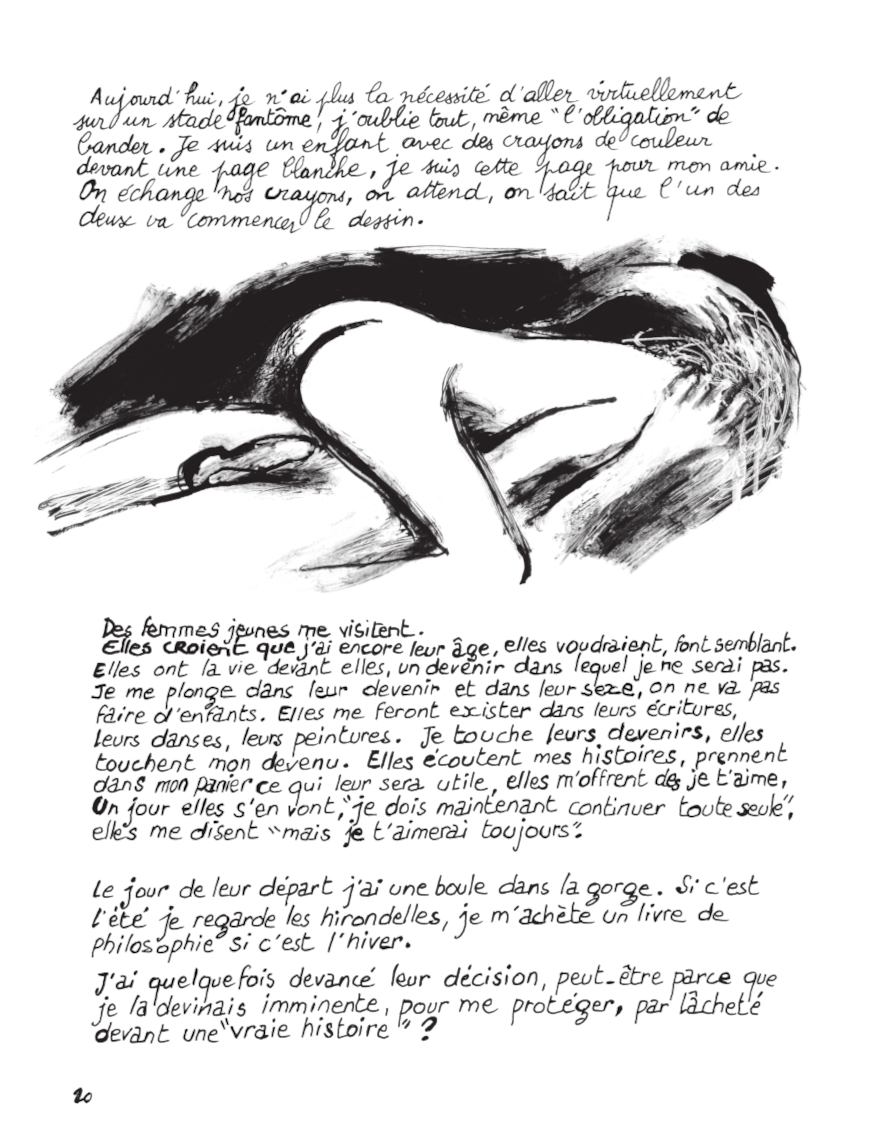 Aujourd'hui, je n'ai plus la nécessité d'aller virtuellement
sur un stade fantôme, j'oublie tout, même "l'obligation" de
bander. Je suis un enfant avec des crayons de couleur
devant une page blanche, je suis cette page pour mon amie.
On échange nos crayons, on attend, on sait que l'un des
deux va commencer le dessin.
Des femmes jeunes me visitent.
Elles croient que j'ai encore leur âge, elles voudraient, font semblant.
Elles ont la vie devant elles, un devenir dans lequel je ne serai pas.
Je me plonge dans leur devenir et dans leur sexe, on ne va pas
faire d'enfants. Elles me feront exister dans leurs écritures,
leurs danses, leurs peintures. Je touche leurs devenirs, elles
touchent mon devenu. Elles écoutent mes histoires, prennent
dans mon panier ce qui leur sera utile, elles m'offrent des je t'aime,
Un jour elles s'en vont, "je dois maintenant continuer toute seule",
elles me disent "mais je t'aimerai toujours".
Le jour de leur départ j'ai une boule dans la gorge. Si c'est
l'été je regarde les hirondelles, je m'achète un livre de
philosophie si c'est l'hiver.
J'ai quelquefois devancé leur décision, peut-être parce que
je la devinais imminente, pour me protéger, par lâcheté
devant une "vraie histoire" ?
20